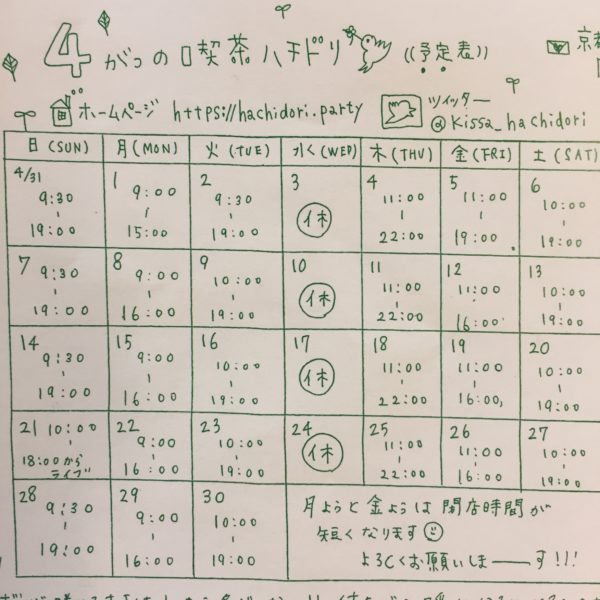 4がつの喫茶ハチドリ ((予定表))
京都
ホームページ https://hachidori.party ツイッター
@kissa_hachidori
日(SUN) 月(MON) 火(TUE) 水く(WED) 木(THU) 金(FRI) 土(SAT)
4/31 1 2 3 4 5 6
9:30 9:00 9:30 休 11:00 11:00 10:00
19:00 15:00 19:00 22:00 19:00 19:00
7 8 9 10 11 12 13
9:30 9:00 10:00 休 11:00 11:00 10:00
19:00 16:00 19:00 22:00 16:00 19:00
14 15 16 17 18 19 20
9:30 9:00 10:00 休 11:00 11:00 10:00
19:00 16:00 19:00 22:00 16:00 19:00
21 22 23 24 25 26 27
10:00 9:00 10:00 休 11:00 11:00 10:00
18:00から
ライブ 16:00 19:00 22:00 16:00 19:00
28 29 30
9:30 9:00 10:00
19:00 16:00 19:00
月ようと金ようは開店時間が
短くなります
よろしくお願いしま――す!!!